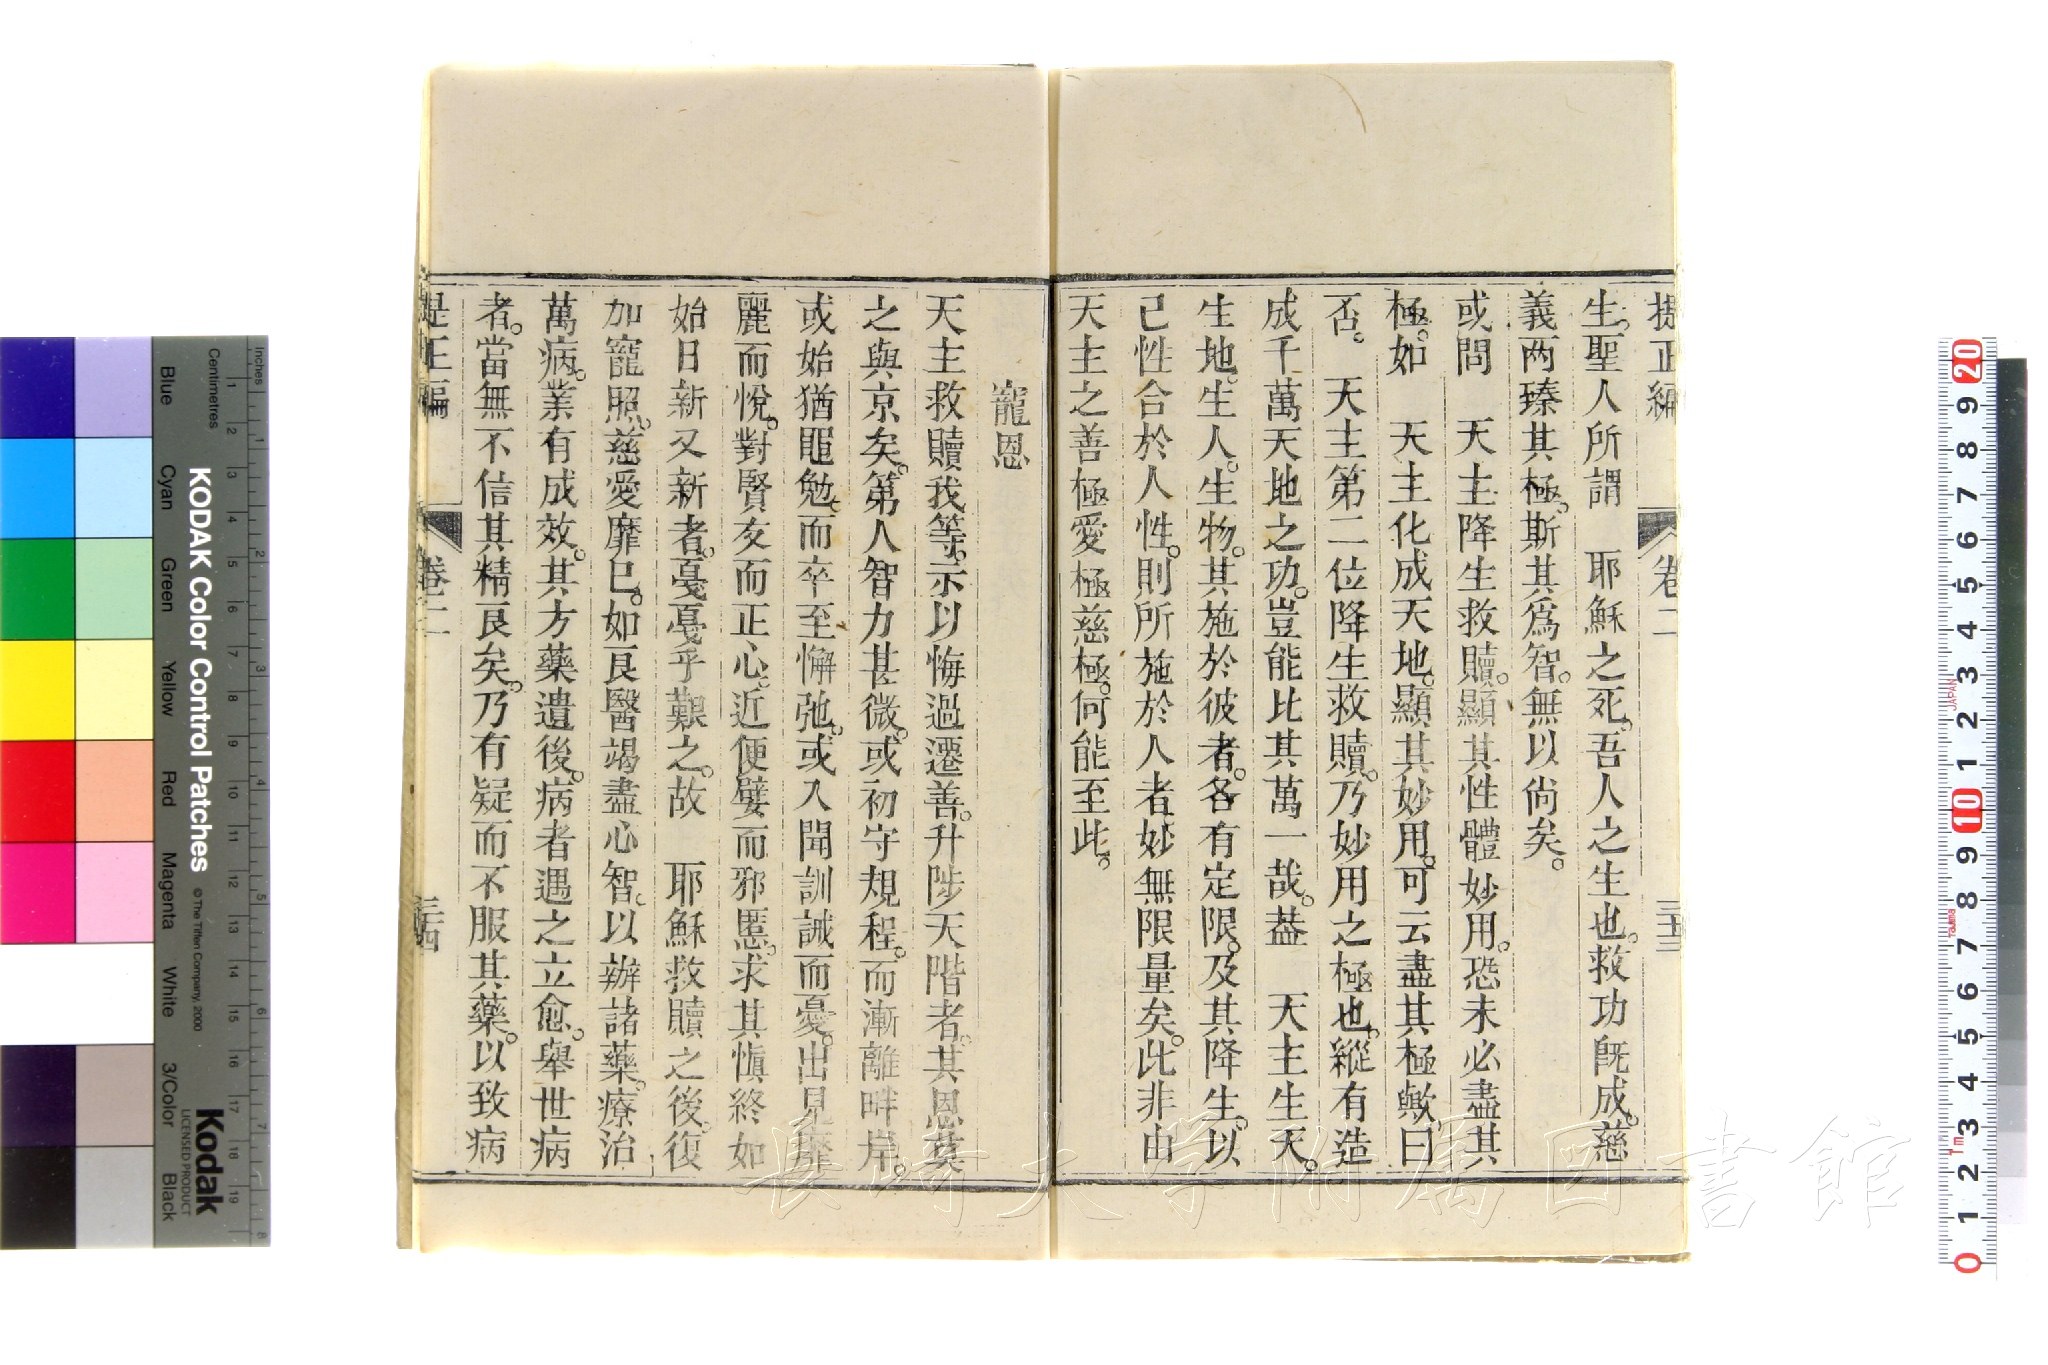 提正編 卷二 三十三
生。聖人所謂　耶穌之死。吾人之生也。救功旣成。慈
義两臻其極。斯其爲智。無以尙矣。
或問　天主降生救贖。顯其性體妙用。恐未必盡其
極。如　天主化成天地。顯其妙用。可云盡其極歟。曰
否。　天主第二位降生救贖。乃妙用之極也。縱有造
成千萬天地之功。豈能比其萬一哉。葢　天主生天。
生地。生人。生物。其施於彼者。各有定限。及其降生。以
己性合於人性。則所施於人者。妙無限量矣。此非由
天主之善極愛極慈極。何能至此。
寵恩
天主救贖我等。示以悔過遷善。升陟天階者。其恩莫
之與京矣。第人智力甚微。或初守規程。而漸離畔岸。
或始猶黽勉。而卒至懈弛。或入聞訓誡而憂。出見靡
麗而悅。對賢友而正心。近便嬖而邪慝。求其愼終如
始日新又新者。戞戞乎艱之。故　耶穌救贖之後。復
加寵照。慈愛靡已。如良醫竭盡心智。以辦諸藥。療治
萬病。業有成效。其方藥遺後。病者遇之立愈。舉世病
者。當無不信其精良矣。乃有疑而不服其藥。以致病
是正編 卷二 三十四
KODAK Color Control Patches
© The Tiffen Company, 2000
Kodak
LICENSED PRODUCT
Inches
Centimetres
Blue Cyan Green Yellow Red Magenta White 3/Color Black
長崎大学附属図書館
JAPAN